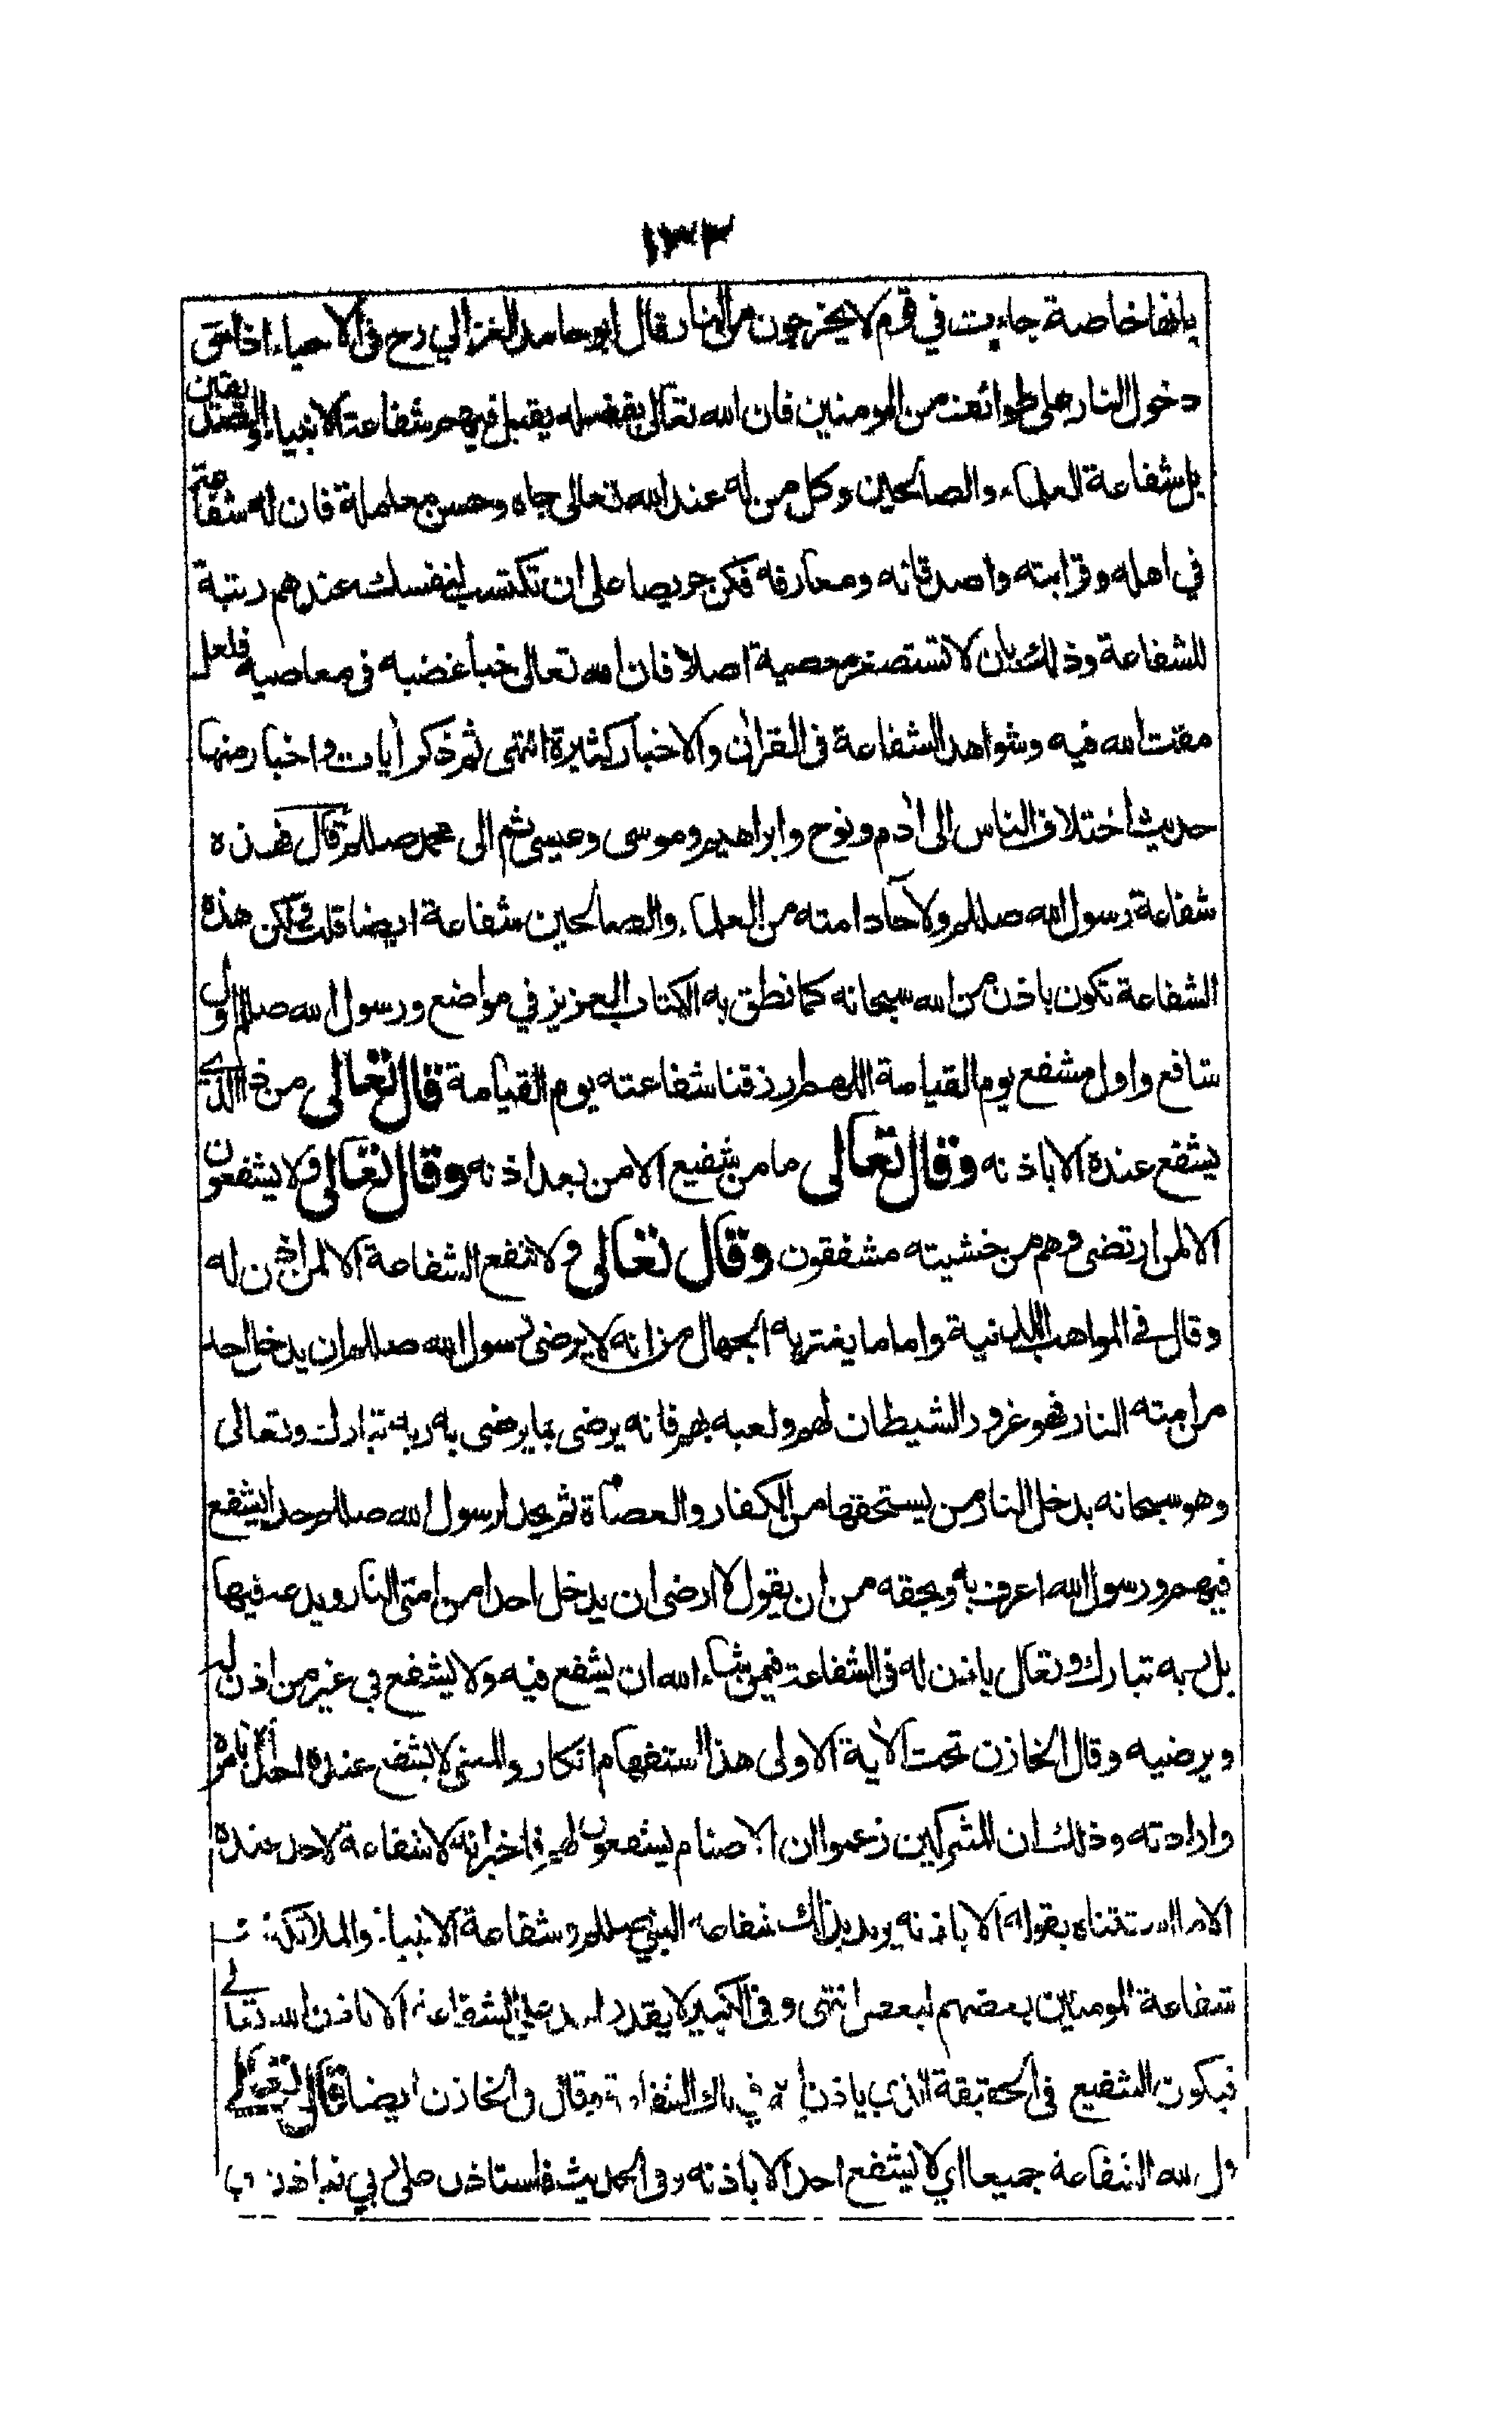 ١٣٢
بانها خاصة جاءت في قوم لا يخرجون من النار قال ابو حامد الغزالي رح في الاحياء اذا حق
دخول النار على طوائف من المومنين فان الله تعالى بفضله يقبل فيهم شفاعة الانبياء والصديقين
بل شفاعة العلماء والصالحين وكل من له عند الله تعالى جاه وحسن معاملة فان له شفاعة
في اهله وقرابته واصدقائه ومعارفه فكن حريصا على ان تكتسب لنفسك عندهم رتبة
للشفاعة وذلك بان لا تستصغر معصية اصلا فان الله تعالى خبأ غضبه في معاصيه فلعل
مقت الله فيه وشواهد الشفاعة في القران والاخبار كثيرة انتهى ثم ذكر ايات واخبار منها
حديث اختلاف الناس الى ادم ونوح وابراهيم وموسى وعيسى ثم الى محمد صللم ثم قال فهذه
شفاعة رسول الله صللم ولاحاد امته من العلماء والصالحين شفاعة ايضا قلت ولكن هذه
الشفاعة تكون باذن من الله سبحانه كما نطق به الكتاب العزيز في مواضع ورسول الله صللم اول
شافع واول مشفع يوم القيامة اللهم ارزقنا شفاعته يوم القيامة قال تعالى من ذا الذي
يشفع عنده الا باذنه وقال تعالى ما من شفيع الا من بعد اذنه وقال تعالى ولا يشفعون
الا لمن ارتضى وهم من خشيته مشفقون وقال تعالى ولا تنفع الشفاعة الا لمن اذن له
وقال في المواهب اللدنية واما ما يغتر به الجهال من انه لا يرضى رسول الله صللم ان يدخل احد
من امته النار فهو غرور الشيطان لهم ولعبه بهم فانه يرضى بما يرضى به ربه تبارك وتعالى
وهو سبحانه يدخل النار من يستحقها من الكفار والعصاة ثم يحد لرسول الله صللم حدا يشفع
فيهم ورسول الله اعرف به وبحقه من ان يقول لا ارضى ان يدخل احدا من امتى النار ويدعه فيها
بل ربه تبارك وتعالى ياذن له في الشفاعة فيمن شاء الله ان يشفع فيه ولا يشفع في غير من اذن له
ويرضيه وقال الخازن تحت الاية الاولى هذا استفهام انكار والمعنى لا يشفع عنده احد الا بامره
وارادته وذلك ان المشركين زعموا ان الاصنام يشفعون لهم فاخبر انه لا شفاعة لاحد عنده
الا ما استثناه بقوله الا باذنه يريد بذلك شفاعة النبي صللم وشفاعة الانبياء والملائكة و
شفاعة المومنين بعضهم لبعض انتهى وفي الكبير لا يقدر احد على الشفاعة الا باذن الله تعالى
فيكون الشفيع في الحقيقة الذي ياذن له في تلك الشفاعة وقال في الخازن ايضا قال تعالى
قل لله الشفاعة جميعا اي لا يشفع احد الا باذنه وفي الحديث فاستاذن على ربي